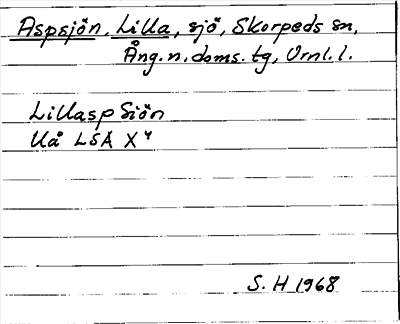 Aspsjön, Lilla, sjö, Skorpeds sn,
Ång. n. doms. tg, Vrnl. l.
Lillasp Siön
Uå LSA X⁴
S. H 1968